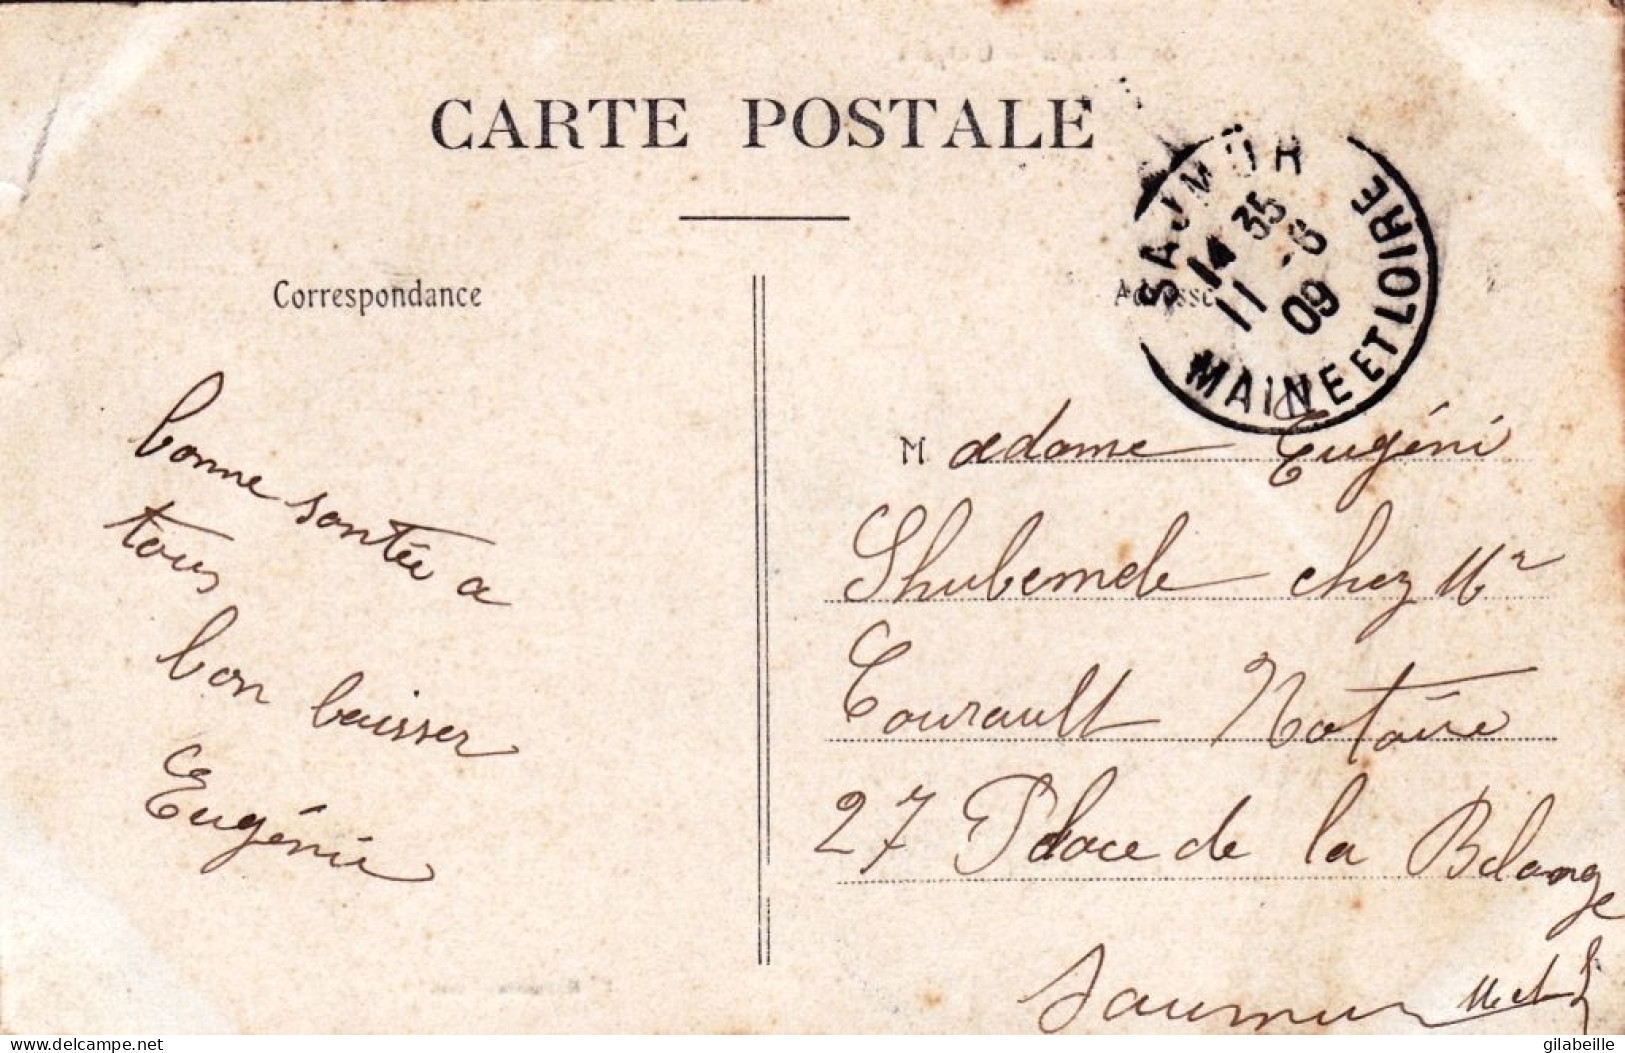 CARTE POSTALE
Correspondance
Adresse
SAUMUR
14 35
11 -8
09
MAINE ET LOIRE
bonne sontée a
tous
bon baisser
Eugénie
Madame Eugéni
chez Mr
Courault Notaire
27 Place de la Blange
Saumur M et L
delcampe.net
gilabeille